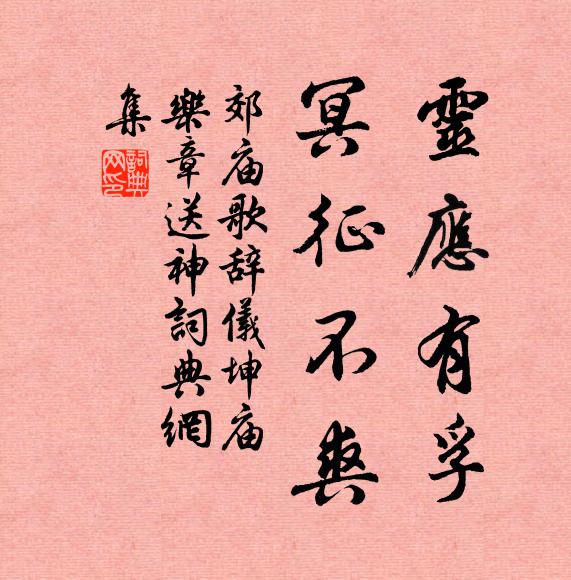 靈應有孚
冥征不爽
郊庙歌辞儀坤庙
樂章送神詞典網
集
詞典網印